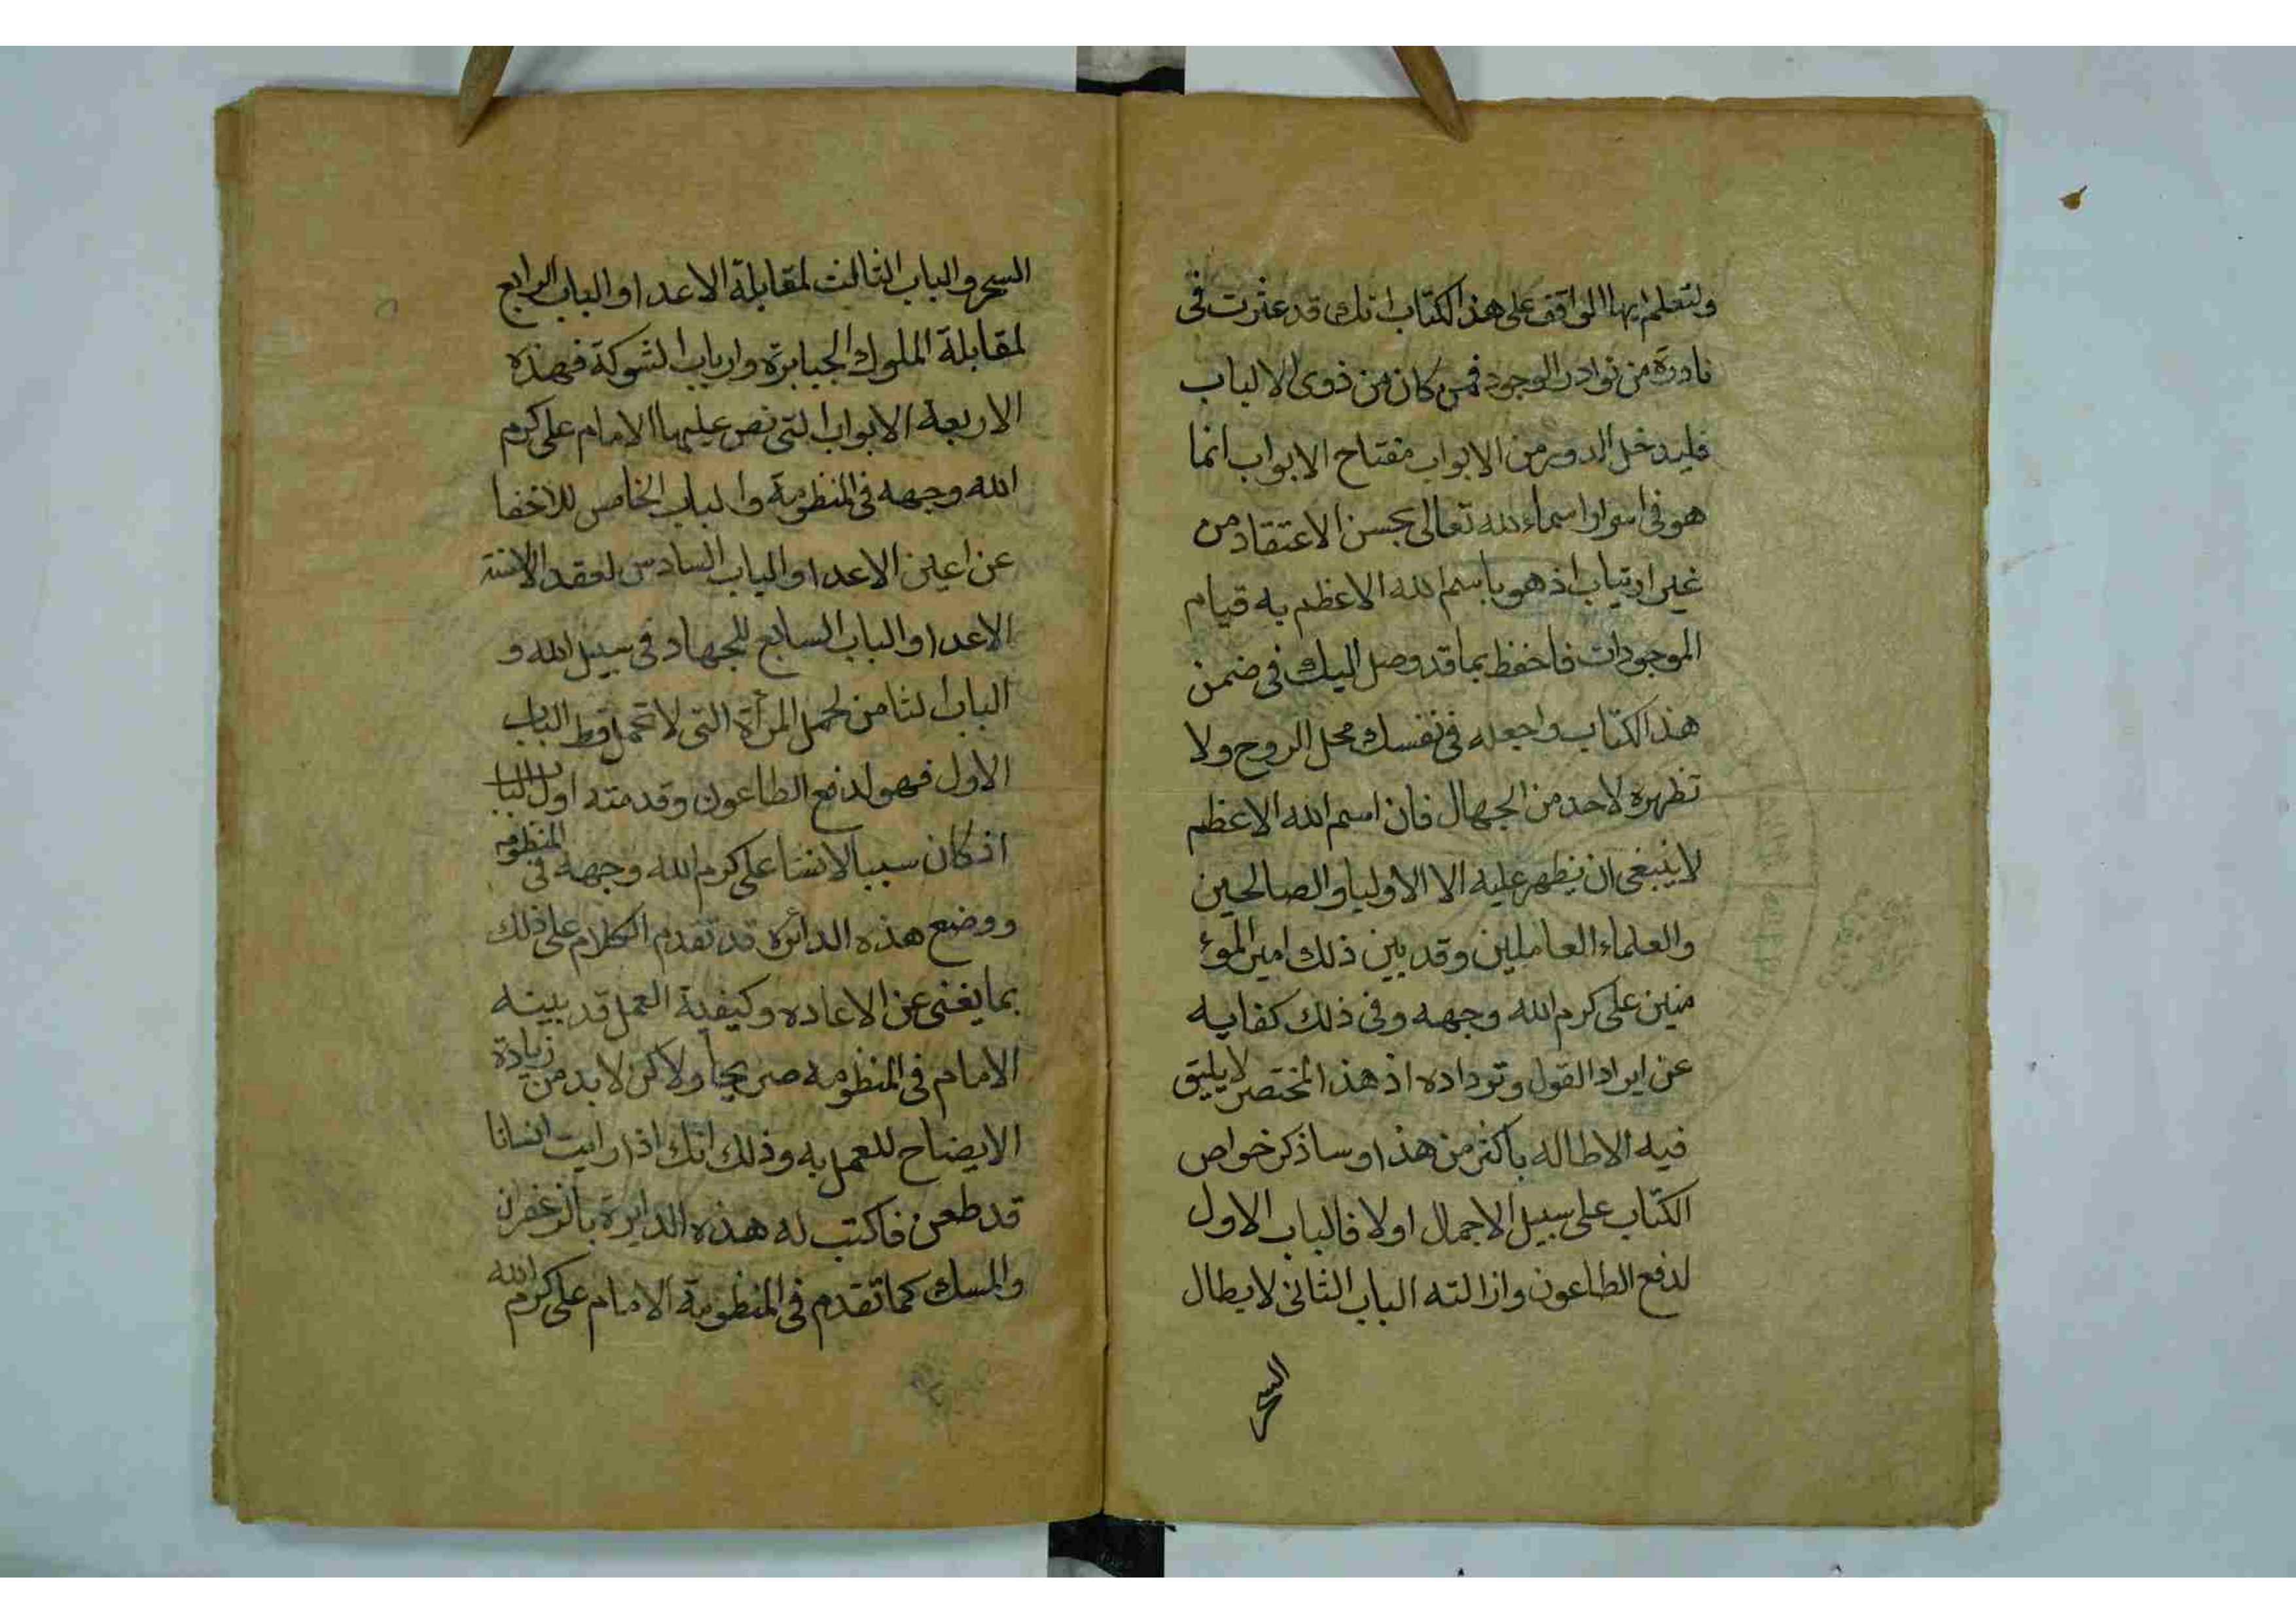 ولتعلم ايها الواقف على هذا الكتاب انك قد عثرت في
نادرة من نوادر الوجود فمن كان من ذوى الالباب
فليدخل الدور من الابواب مفتاح الابواب انما
هو فى اسرار اسماء الله تعالى بحسن الاعتقاد من
غير ارتياب اذ هو باسم الله الاعظم به قيام
الموجودات فاحفظ بما قد وصل اليك فى ضمن
هذا الكتاب واجعله فى نفسك محل الروح ولا
تظهره لاحد من الجهال فان اسم الله الاعظم
لا ينبغى ان يظهر عليه الا الاوليا والصالحين
والعلماء العاملين وقد بين ذلك امير المؤ
منين على كرم الله وجهه وفى ذلك كفايه
عن ايراد القول وترداده اذ هذا المختصر لا يليق
فيه الاطاله باكثر من هذا وساذكر خواص
الكتاب على سبيل الاجمال اولا فالباب الاول
لدفع الطاعون وازالته الباب الثانى لابطال
السحر
السحر والباب الثالث لمقابلة الاعدا والباب الرابع
لمقابلة الملوك الجبابرة وارباب الشوكة فهذه
الاربعة الابواب التى نص عليها الامام على كرم
الله وجهه فى المنظومة والباب الخامس للاخفا
عن اعين الاعدا والباب السادس لعقد الالسنة
الاعدا والباب السابع للجهاد فى سبيل الله و
الباب الثامن لحمل المرأة التى لا تحمل قط الباب
الاول فهو لدفع الطاعون وقدمته اول البا
اذ كان سببا لانشا على كرم الله وجهه فى المنظومه
ووضع هذه الدائره قد تقدم الكلام على ذلك
بما يغنى عن الاعاده وكيفية العمل قد بينه
الامام فى المنظومه صريحا ولاكن لا بد من زيادة
الايضاح للعمل به وذلك انك اذا رايت انسانا
قد طعن فاكتب له هذه الدايرة بالزعفران
والمسك كما تقدم فى المنظومة الامام على كرم الله